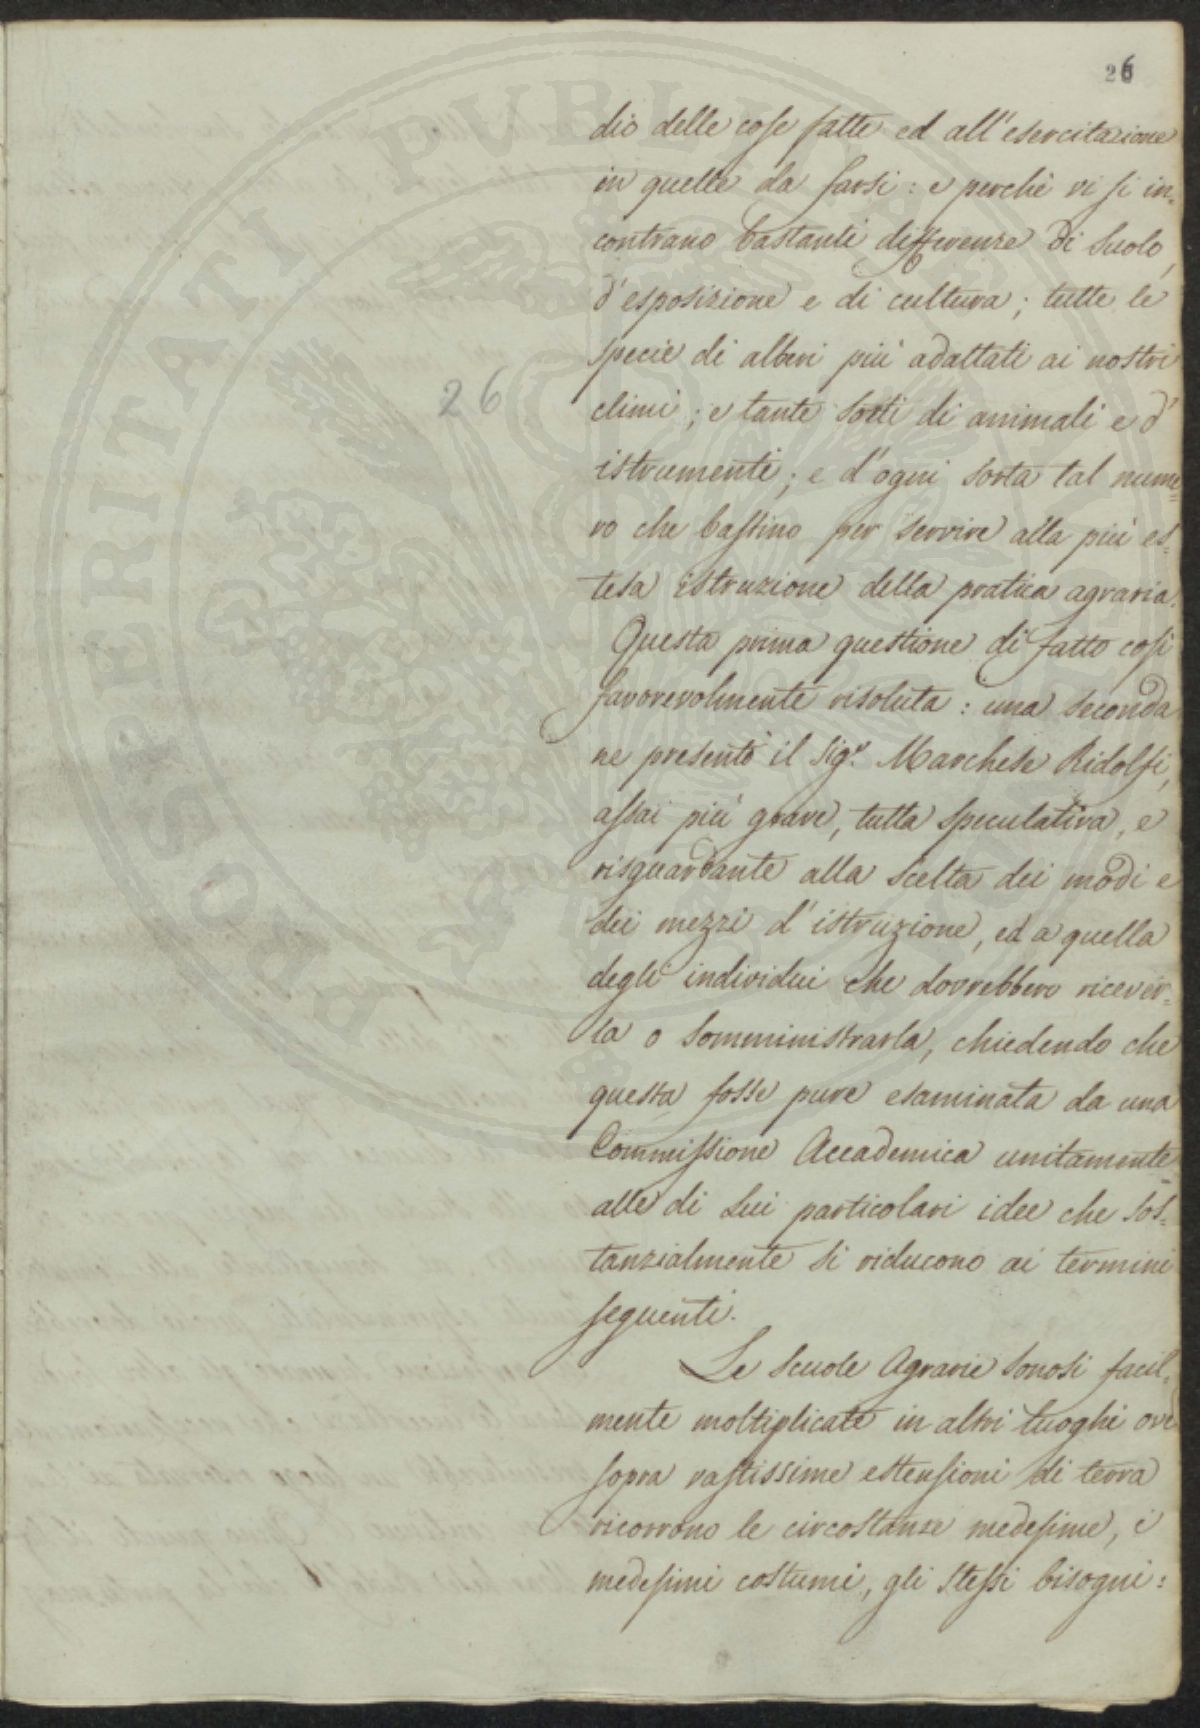 26
dio delle cose fatte ed all'esercitazione
in quelle da farsi: e perchè vi si in=
contrano bastanti differenze di suolo,
d'esposizione e di cultura; tutte le
specie di alberi più adattati ai nostri
climi; e tante sorti di animali e d'
istrumenti; e d'ogni sorta tal nume=
ro che bastino per servire alla più es=
tesa istruzione della pratica agraria.
Questa prima questione di fatto così
favorevolmente risoluta: una seconda
ne presentò il Sigr. Marchese Ridolfi,
assai più grave, tutta speculativa, e
risguardante alla scelta dei modi e
dei mezzi d'istruzione, ed a quella
degli individui che dovrebbero ricever=
la o somministrarla, chiedendo che
questa fosse pure esaminata da una
Commissione Accademica unitamente
alle di Lui particolari idee che sos=
tanzialmente si riducono ai termini
seguenti.
Le Scuole Agrarie sonosi facil=
mente moltiplicate in altri luoghi ove
sopra vastissime estensioni di terra
ricorrono le circostanze medesime, i
medesimi costumi, gli stessi bisogni:
26
PROSPERITATI PUBLICAE